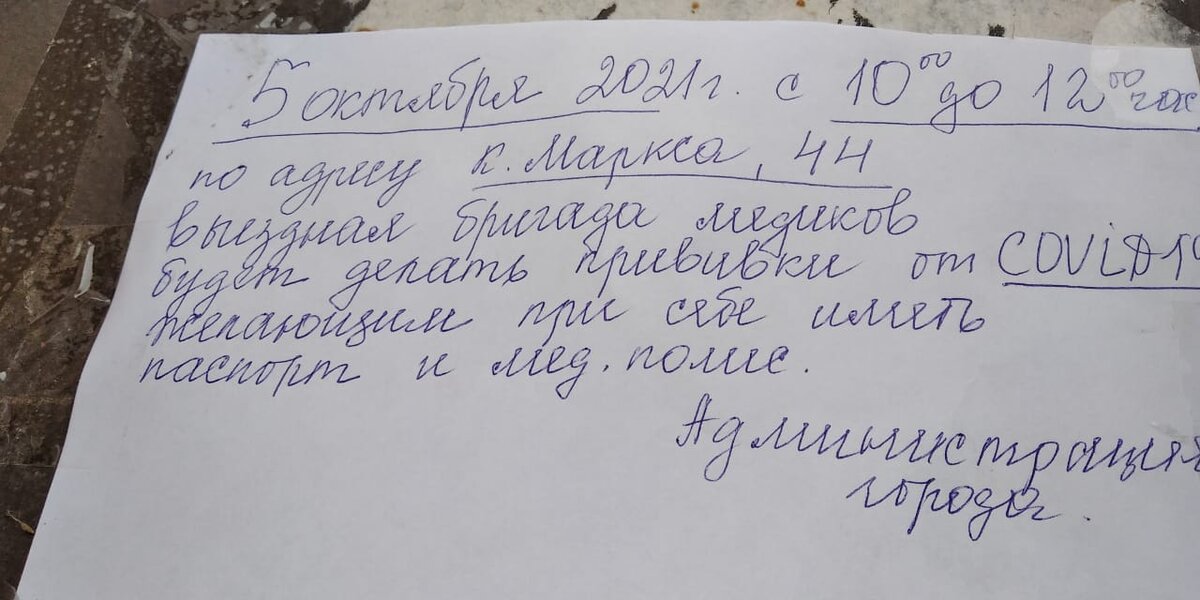 5 октября 2021г. с 10⁰⁰ до 12⁰⁰ час
по адресу К. Маркса, 44
выездная бригада медиков
будет делать прививки от COVID19
желающим при себе иметь
паспорт и мед. полис.
Администрация
города.